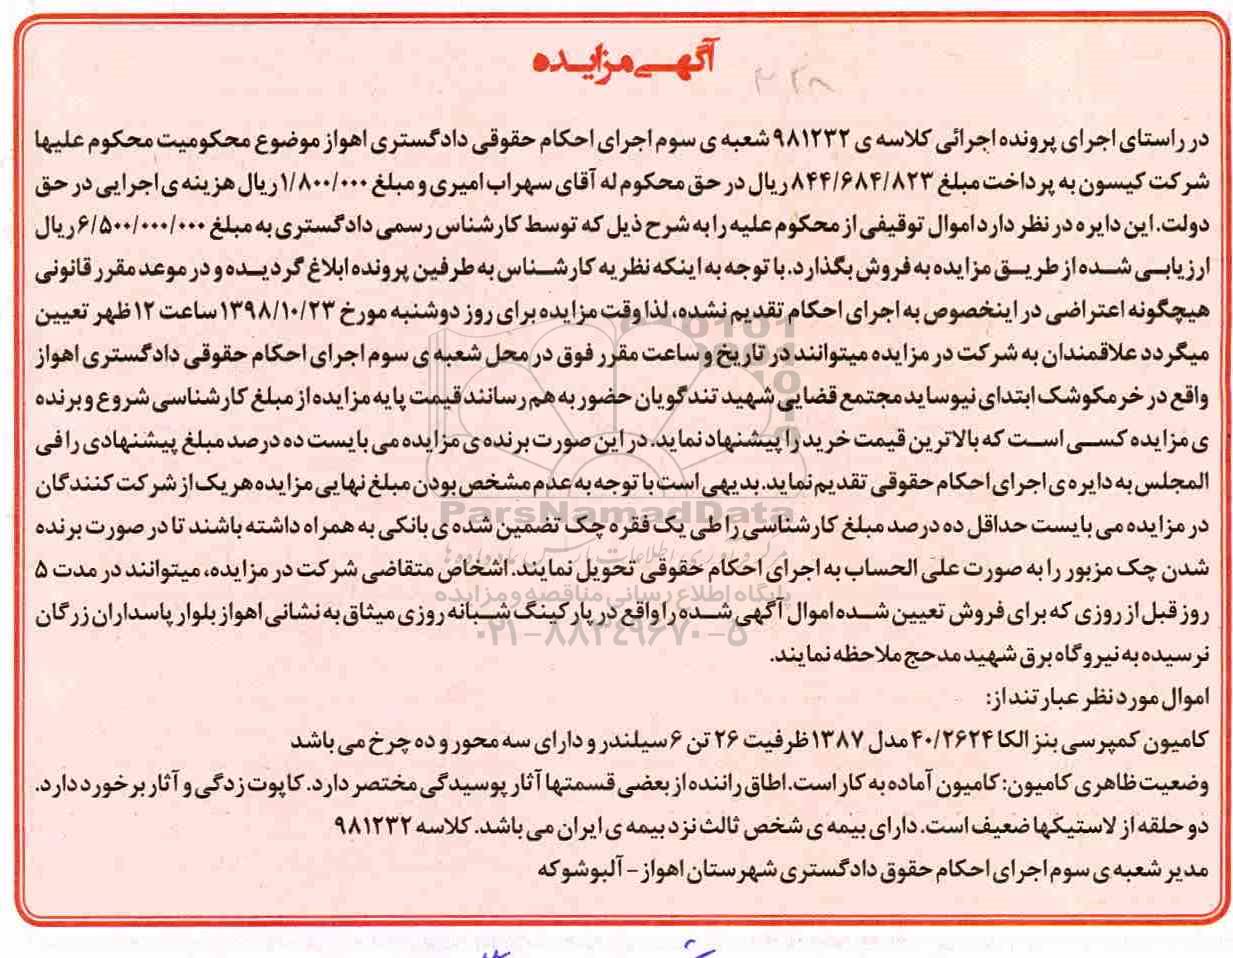 آگهی مزایده
در راستای اجرای پرونده اجرائی کلاسه ی ۹۸۱۲۳۲ شعبه ی سوم اجرای احکام حقوقی دادگستری اهواز موضوع محکومیت محکوم علیها
شرکت کیسون به پرداخت مبلغ ۸۴۴/۶۸۴/۸۲۳ ریال در حق محکوم له آقای سهراب امیری و مبلغ ۱/۸۰۰/۰۰۰ ریال هزینه ی اجرایی در حق
دولت. این دایره در نظر دارد اموال توقیفی از محکوم علیه را به شرح ذیل که توسط کارشناس رسمی دادگستری به مبلغ ۶/۵۰۰/۰۰۰/۰۰۰ ریال
ارزیابی شده از طریق مزایده به فروش بگذارد. با توجه به اینکه نظریه کارشناس به طرفین پرونده ابلاغ گردیده و در موعد مقرر قانونی
هیچگونه اعتراضی در اینخصوص به اجرای احکام تقدیم نشده، لذا وقت مزایده برای روز دوشنبه مورخ ۱۳۹۸/۱۰/۲۳ ساعت ۱۲ ظهر تعیین
میگردد علاقمندان به شرکت در مزایده میتوانند در تاریخ و ساعت مقرر فوق در محل شعبه ی سوم اجرای احکام حقوقی دادگستری اهواز
واقع در خرمکوشک ابتدای نیوساید مجتمع قضایی شهید تندگویان حضور به هم رسانند قیمت پایه مزایده از مبلغ کارشناسی شروع و برنده
ی مزایده کسی است که بالاترین قیمت خرید را پیشنهاد نماید. در این صورت برنده ی مزایده می بایست ده درصد مبلغ پیشنهادی را فی
المجلس به دایره ی اجرای احکام حقوقی تقدیم نماید. بدیهی است با توجه به عدم مشخص بودن مبلغ نهایی مزایده هر یک از شرکت کنندگان
در مزایده می بایست حداقل ده درصد مبلغ کارشناسی را طی یک فقره چک تضمین شده ی بانکی به همراه داشته باشند تا در صورت برنده
شدن چک مزبور را به صورت علی الحساب به اجرای احکام حقوقی تحویل نمایند. اشخاص متقاضی شرکت در مزایده، میتوانند در مدت ۵
روز قبل از روزی که برای فروش تعیین شده اموال آگهی شده را واقع در پارکینگ شبانه روزی میثاق به نشانی اهواز بلوار پاسداران زرگان
نرسیده به نیروگاه برق شهید مدحج ملاحظه نمایند.
اموال مورد نظر عبارتند از:
کامیون کمپرسی بنز الکا ۴۰/۲۶۲۴ مدل ۱۳۸۷ ظرفیت ۲۶ تن ۶ سیلندر و دارای سه محور و ده چرخ می باشد
وضعیت ظاهری کامیون: کامیون آماده به کار است. اطاق راننده از بعضی قسمتها آثار پوسیدگی مختصر دارد. کاپوت زدگی و آثار برخورد دارد.
دو حلقه از لاستیکها ضعیف است. دارای بیمه ی شخص ثالث نزد بیمه ی ایران می باشد. کلاسه ۹۸۱۲۳۲
مدیر شعبه ی سوم اجرای احکام حقوق دادگستری شهرستان اهواز – آلبوشوکه
ParsNamadData
مرکز فرآوری اطلاعات پارس نماد داده ها
پایگاه اطلاع رسانی مناقصه و مزایده
۰۲۱-۸۸۳۴۹۶۷۰-۵